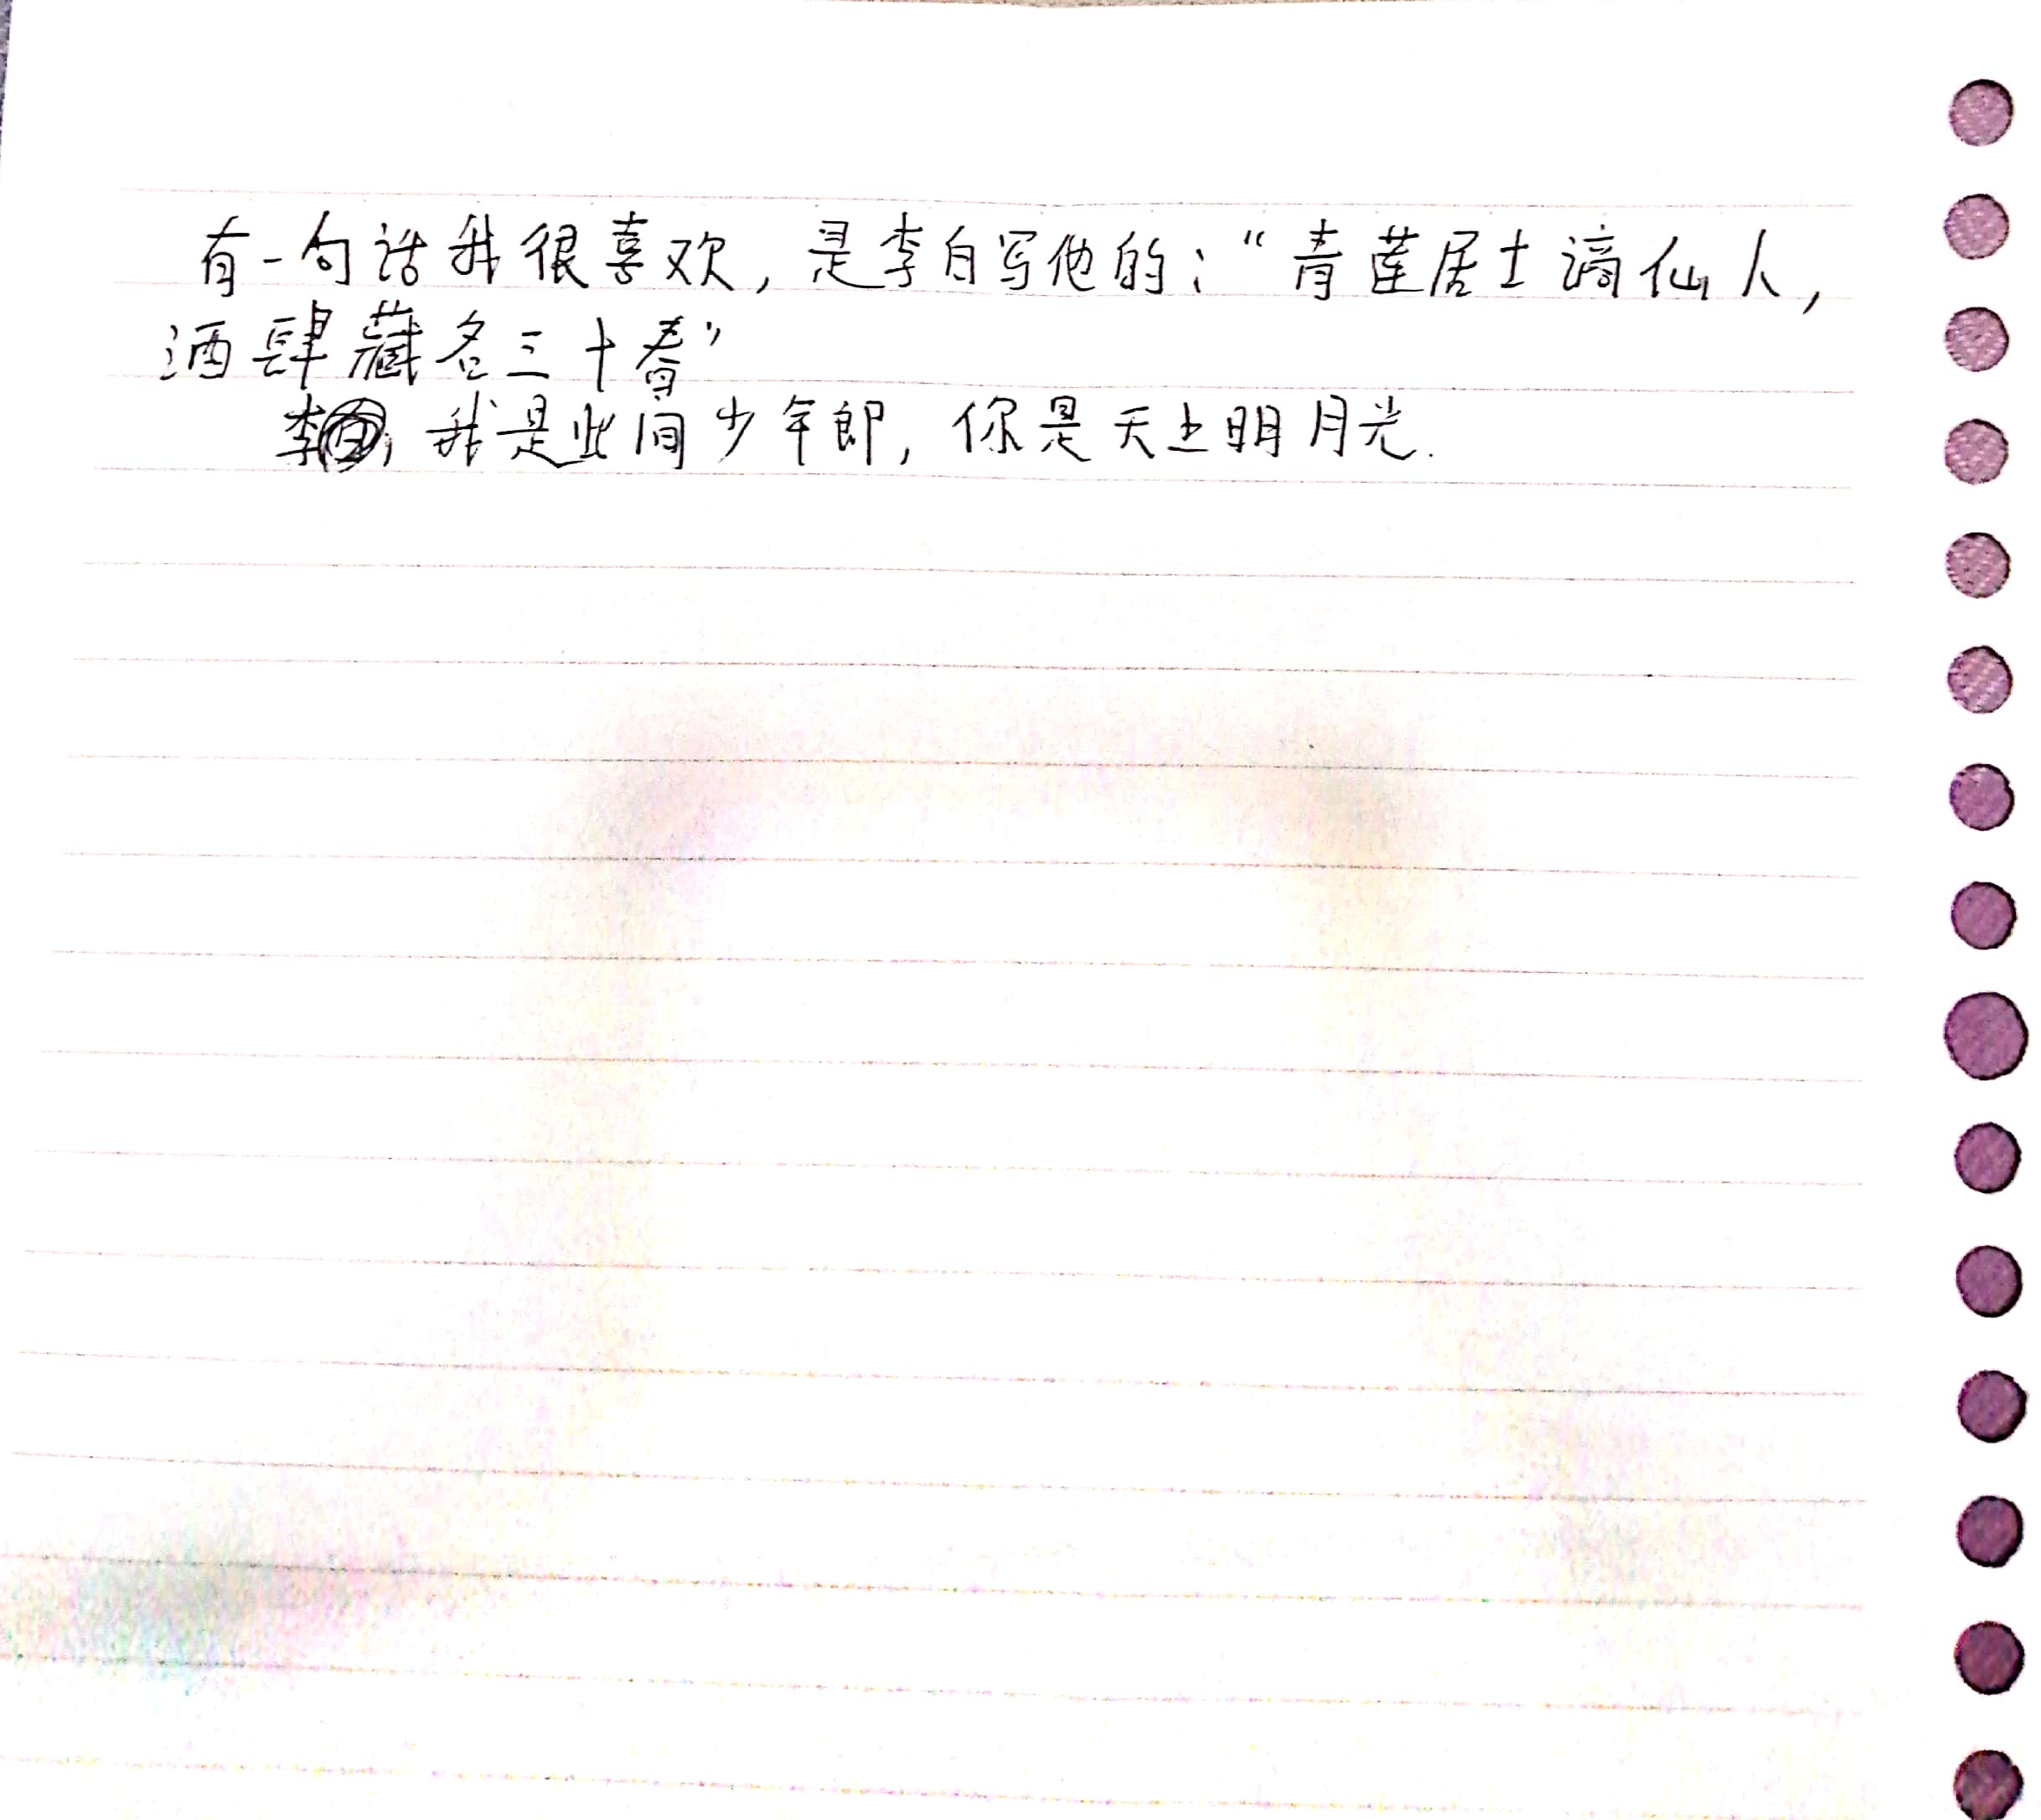 有一句话我很喜欢，是李白写他的：“青莲居士谪仙人，
酒肆藏名三十春”
李白，我是此间少年郎，你是天上明月光.